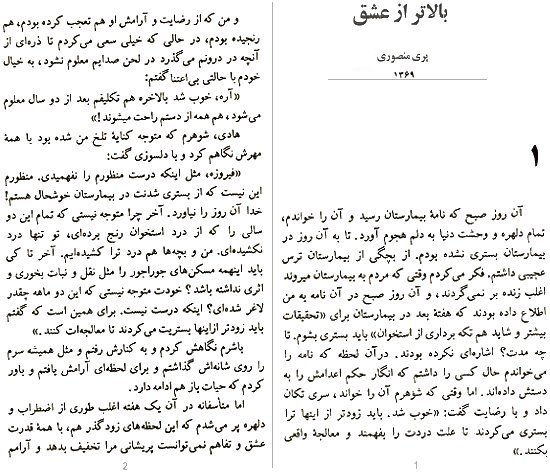 بالاتر از عشق
پری منصوری
۱۳۶۹
۱
آن روز صبح که نامهٔ بیمارستان رسید و آن را خواندم،
تمام دلهره و وحشت دنیا به دلم هجوم آورد. تا به آن روز در
بیمارستان بستری نشده بودم. از بچگی از بیمارستان ترس
عجیبی داشتم. فکر می‌کردم وقتی که مردم به بیمارستان میروند
اغلب زنده بر نمی‌گردند، و آن روز صبح در آن نامه به من
اطلاع داده بودند که هفتهٔ بعد در بیمارستان برای «تحقیقات
بیشتر و شاید هم تکه برداری از استخوان» باید بستری بشوم. تا
چه مدت؟ اشاره‌ای نکرده بودند. درآن لحظه که نامه را
می‌خواندم حال کسی را داشتم که انگار حکم اعدامش را به
دستش داده‌اند. اما وقتی که شوهرم آن را خواند، سری تکان
داد و با رضایت گفت: «خوب شد. باید زودتر از اینها ترا
بستری می‌کردند تا علت دردت را بفهمند و معالجهٔ واقعی
بکنند.»
1
و من که از رضایت و آرامش او هم تعجب کرده بودم، هم
رنجیده بودم، در حالی که خیلی سعی می‌کردم تا ذره‌ای از
آنچه در درونم می‌گذرد در لحن صدایم معلوم نشود، به خیال
خودم با حالتی بی‌اعتنا گفتم:
«آره، خوب شد بالاخره هم تکلیفم بعد از دو سال معلوم
می‌شود، هم همه از دستم راحت میشوند!»
هادی، شوهرم که متوجه کنایهٔ تلخ من شده بود با همهٔ
مهرش نگاهم کرد و با دلسوزی گفت:
«فیروزه، مثل اینکه درست منظورم را نفهمیدی. منظورم
این نیست که از بستری شدنت در بیمارستان خوشحال هستم!
خدا آن روز را نیاورد. آخر چرا متوجه نیستی که تمام این دو
سالی را که از درد استخوان رنج برده‌ای، تو تنها درد
نکشیده‌ای. من و بچه‌ها هم درد ترا کشیده‌ایم. آخر تا کی
باید اینهمه مسکن‌های جوراجور را مثل نقل و نبات بخوری و
اثری نداشته باشد؟ خودت متوجه نیستی که این دو ماهه چقدر
لاغر شده‌ای؟ اینکه درست نیست. برای همین است که گفتم
باید زودتر ازاینها بستریت می‌کردند تا معالجه‌ات کنند.»
باشرم نگاهش کردم و به کنارش رفتم و مثل همیشه سرم
را روی شانه‌اش گذاشتم و برای لحظه‌ای آرامش یافتم و باور
کردم که حیات باز هم ادامه دارد.
اما متأسفانه در آن یک هفته اغلب طوری از اضطراب و
دلهره پر می‌شدم که این لحظه‌های زودگذر هم، با همهٔ قدرت
عشق و تفاهم نمی‌توانست پریشانی مرا تخفیف بدهد و آرامم
2